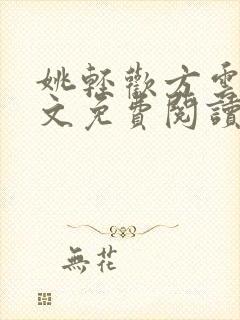 姚輕歡方雲
文免費閱讀
無花